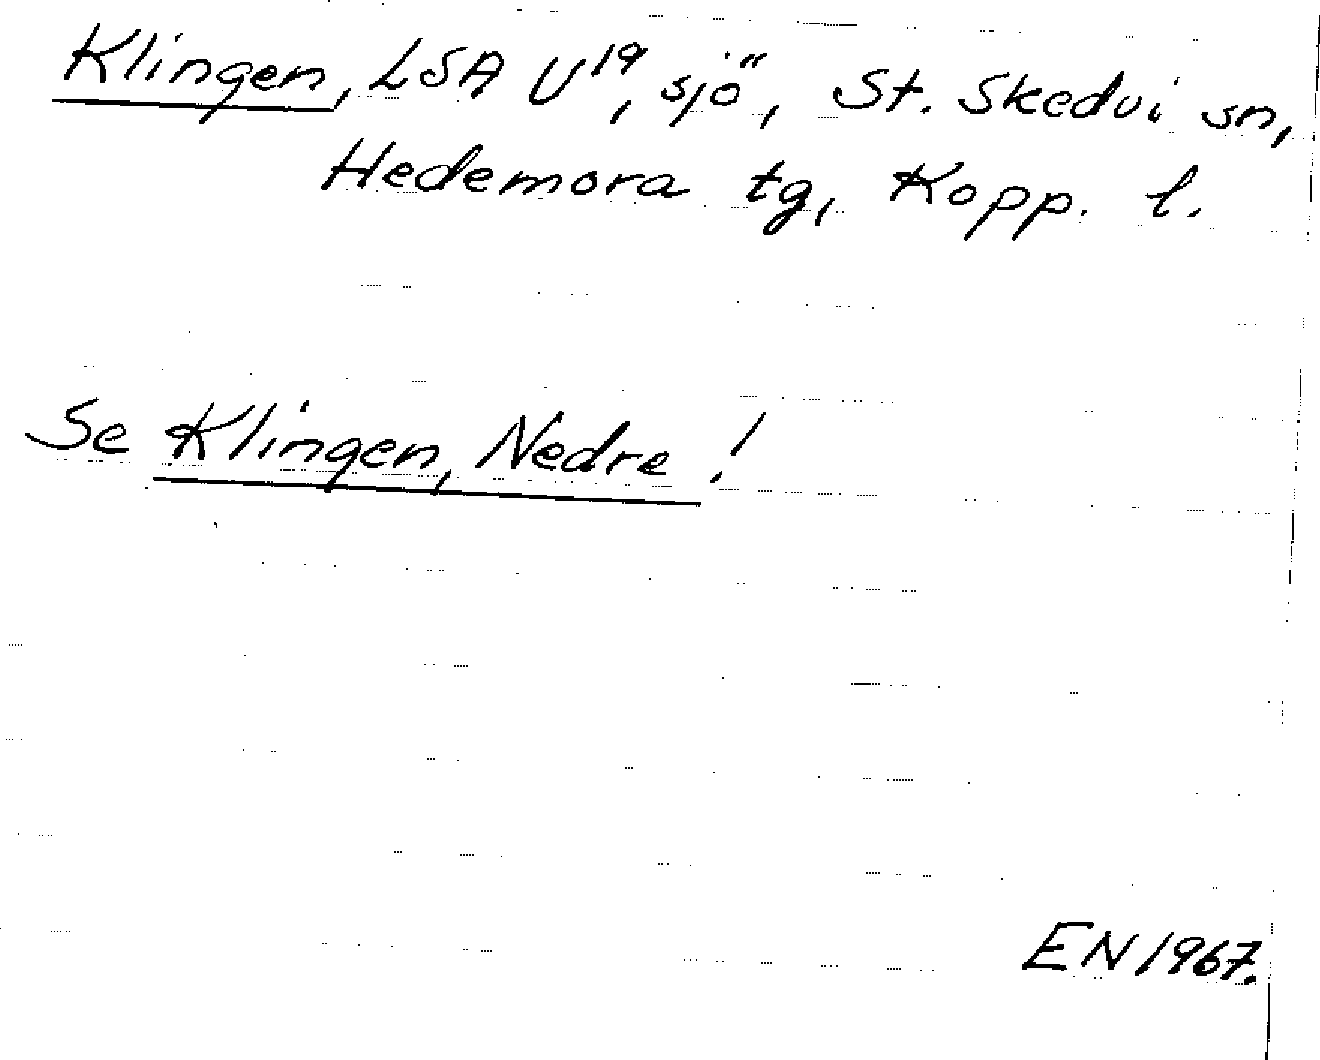 Klingen, LSA U19, sjö, St. Skedvi sn,
Hedemora tg, Kopp. l.
Se Klingen, Nedre!
EN 1967.